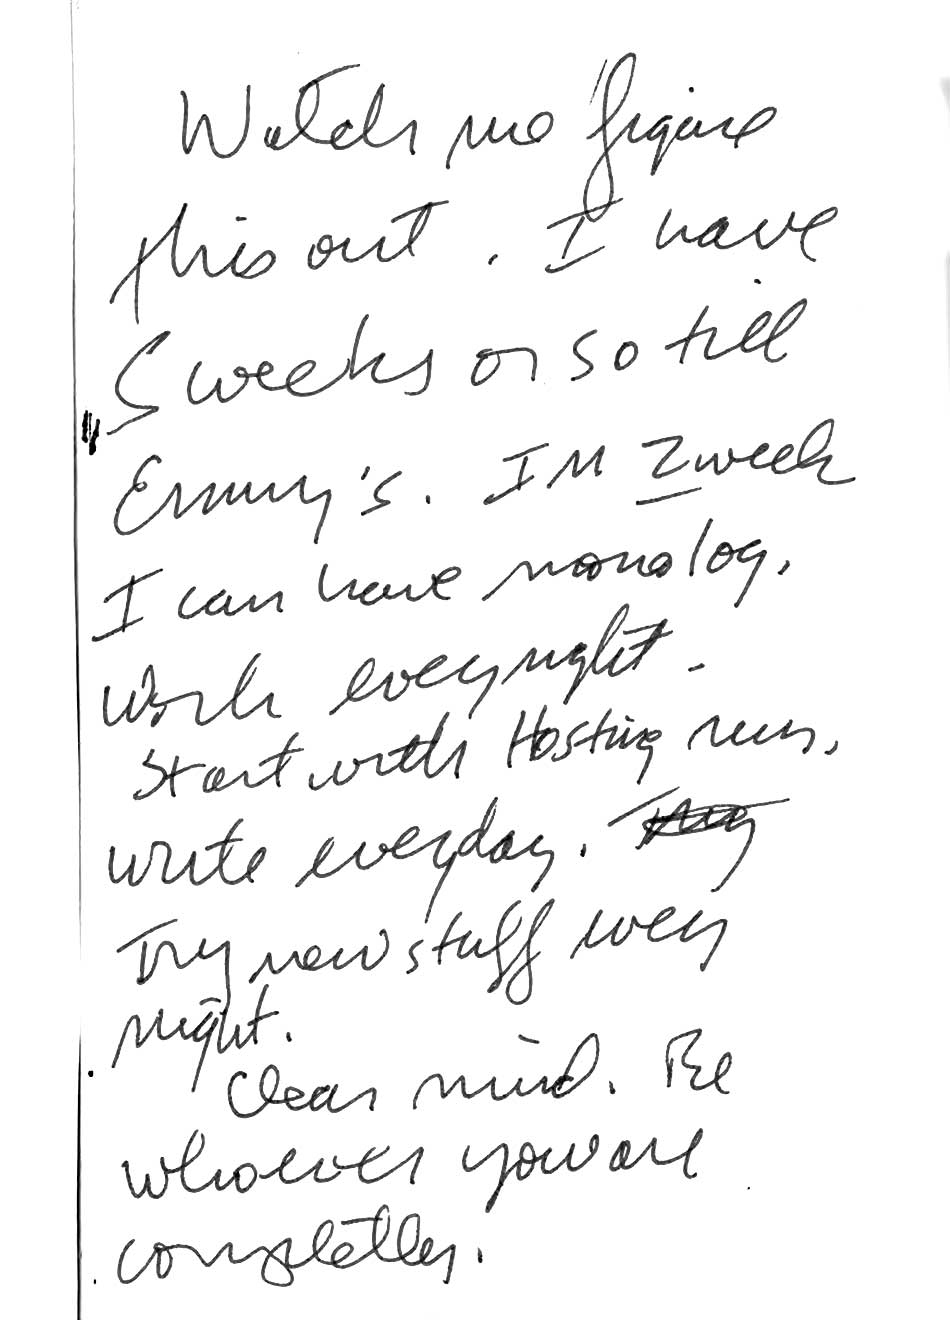 Watch me figure
this out. I have
5 weeks or so till
Emmy's. IN 2 week
I can have monolog.
Work every night -
Start with Hosting run.
write everyday.
Try new stuff every
night.
Clear mind. Be
whoever you are
completley.